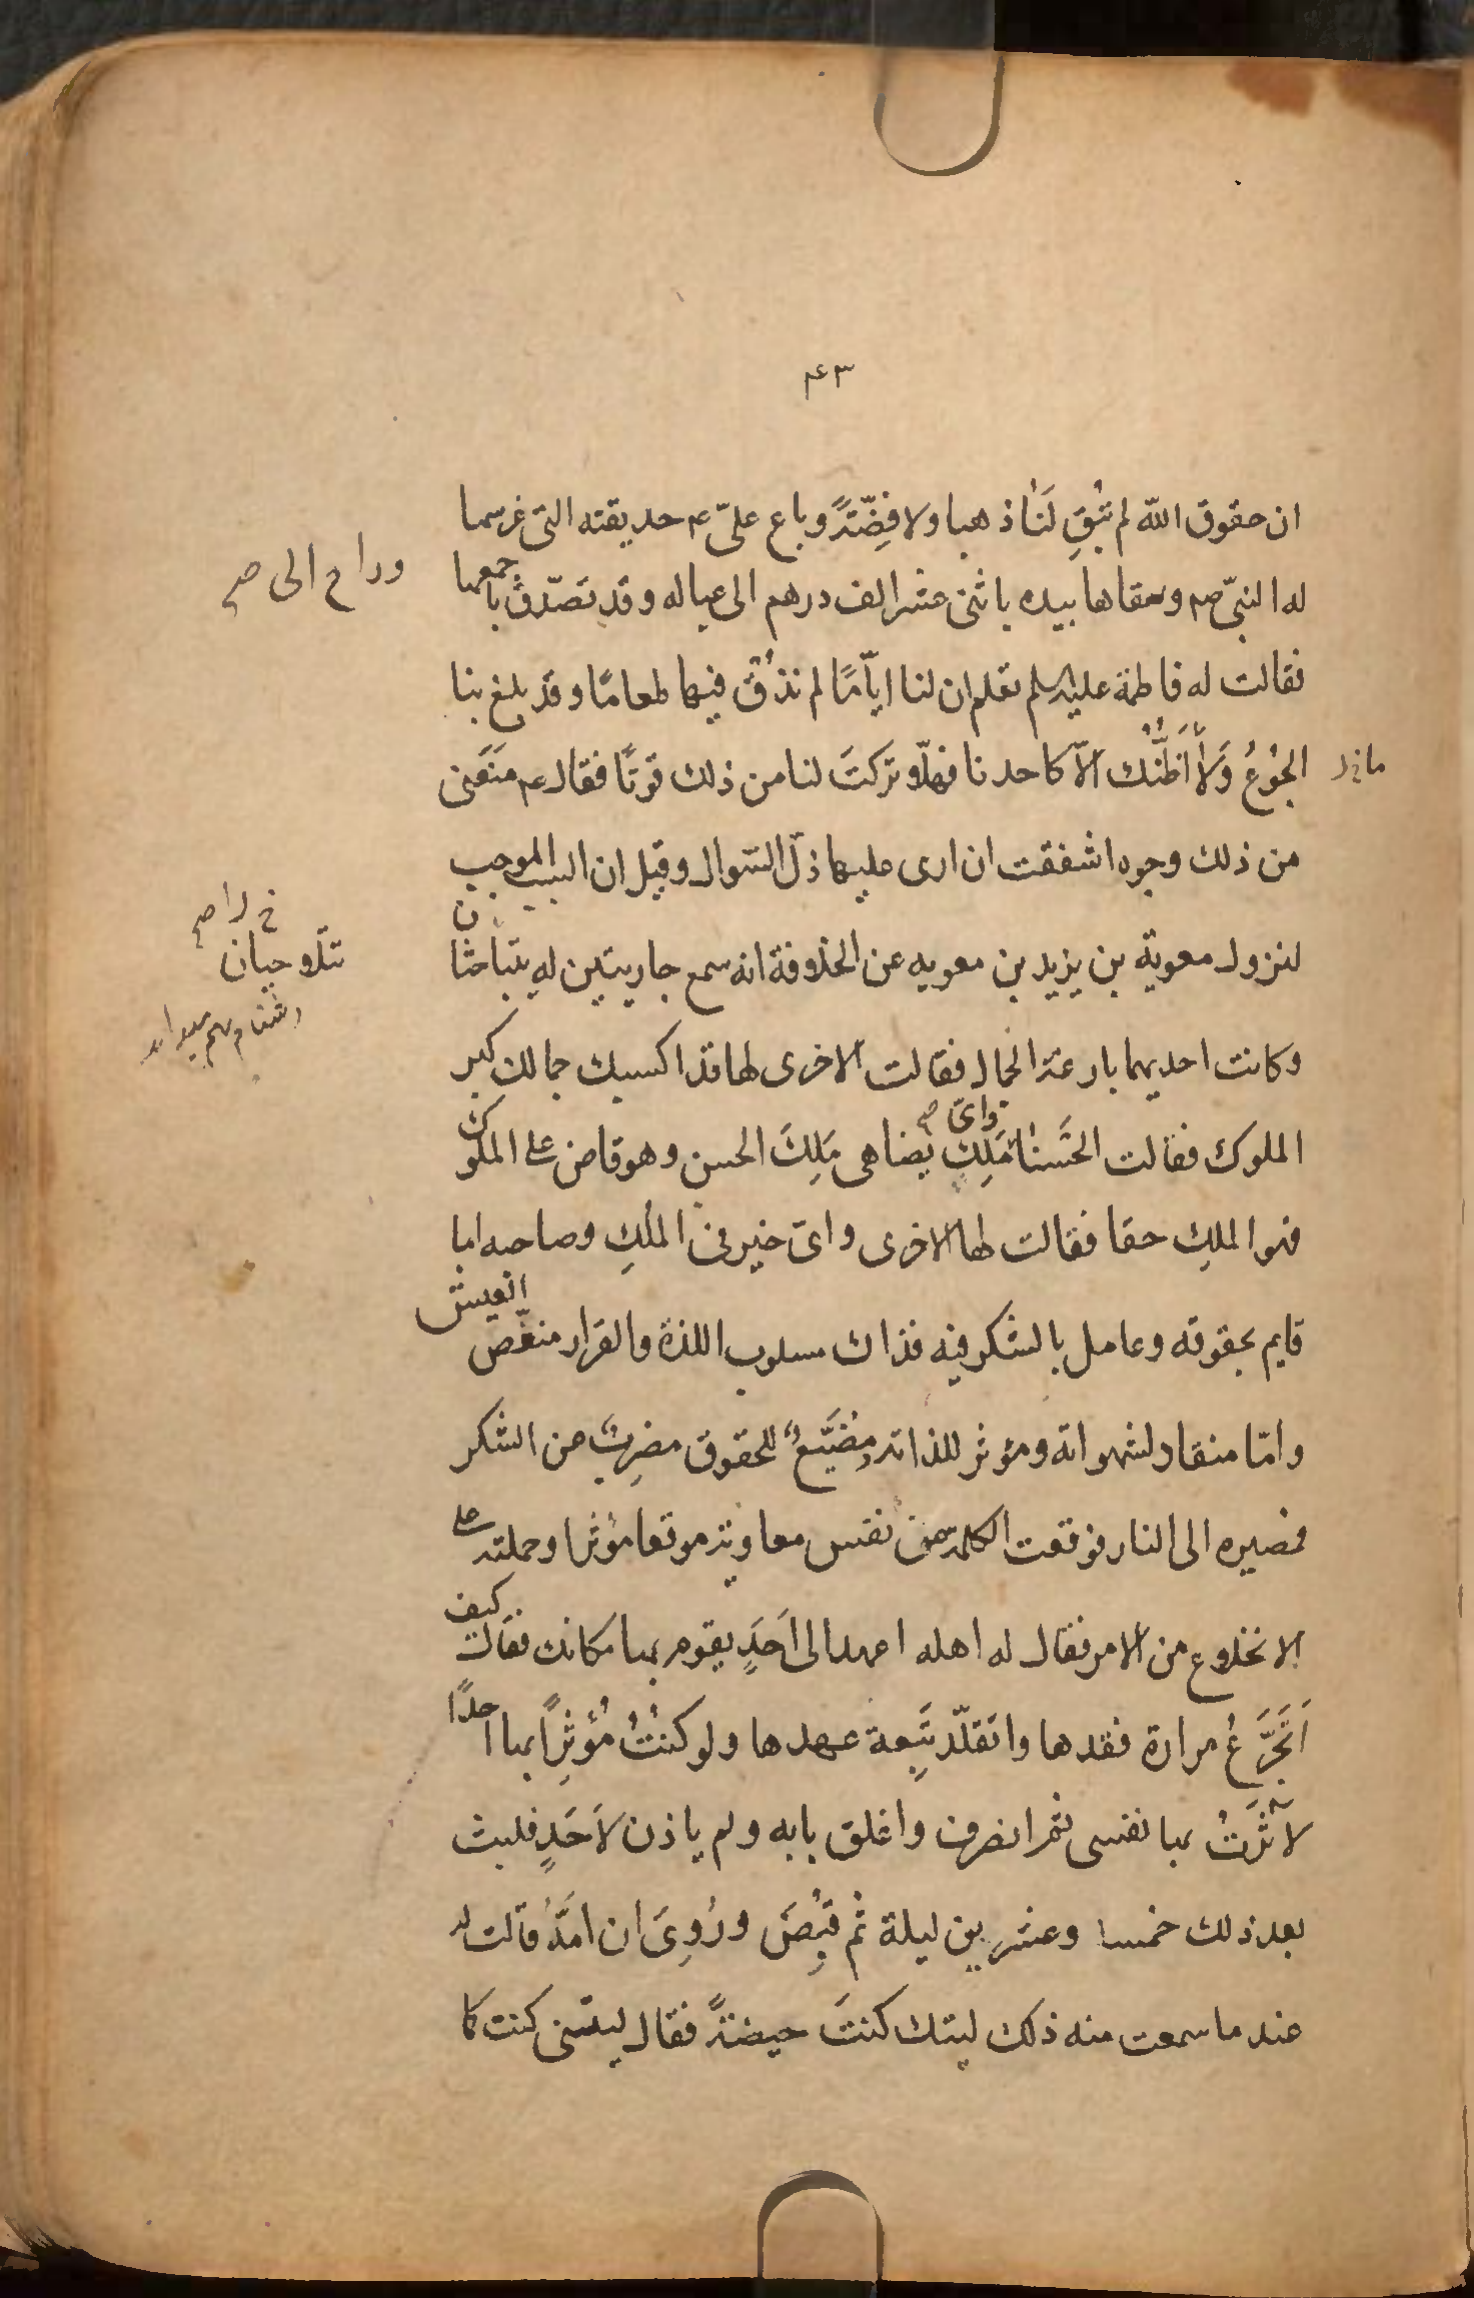 ۴۳
ان حقوق الله لم تُبْقِ لَنٰا ذهبا ولا فِضّةً وباع علىّ ع حديقته التى غرسها
له النبىّ ص وسقاها بيده باثنى عشر الف درهم الى عياله وقد تصدّق باجمعها
وراح الى صح
فقالت له فاطمة عليها السلم تعلم ان لنا ايّامًا لم نذُقْ فيها طعامًا وقد بلغ بنا
الجُوْعُ وَلاٰ اَظُنُّك الّا كاحدنا فهلّا تركتَ لنا من ذلك قوتًا فقال ع مَنَعَنى
من ذلك وجوه اشفقت ان ارى عليها ذلّ السّوال وقيل ان السبب الموجب
لنزول معوية بن يزيد بن معويه عن الخلافة انه سمع جاريتين له يتباحثان
وكانت احديهما بارعة الجمال فقالت الاخرى لها قد اكسبك جمالك كبر
الملوك فقالت الحَسنٰاء واىّ صح مَلِك يضاهى مَلِكَ الحسن وهو قاض على الملوك
فهو الملِك حقا فقالت لها الاخرى واىّ خير فى الملكِ وصاحبه اما
قايم بحقوقه وعامل بالشكر فيه فذاك مسلوب اللذة والقرار منغّص العيش
وامّا منقاد لشهواته ومؤثر للذاته ومُضَيّعٌ للحقوق مضرِبٌ عن الشكر
فمصيره الى النار فوقعت الكلمة من نفس معاوية موقعا مؤثرا وحملته على
الانخلاع من الامر فقال له اهله اعهد الى اَحَدٍ يقوم بها مكانك فقال كيف
اَتَجَرَّعُ مرارة فقدها واتقلّد تَبِعة عهدها ولو كنتُ مُؤْثِرًا بها احدًا
لآثَرْتُ بها نفسى ثم انصرف واغلق بابه ولم ياذن لاَحَدٍ فلبث
بعد ذلك خمسا وعشرين ليلة ثم قُبِضَ ورُوِىَ ان امّهُ قالت له
عند ما سمعت منه ذلك ليتك كنتَ حيضةً فقال ليتنى كنت كما